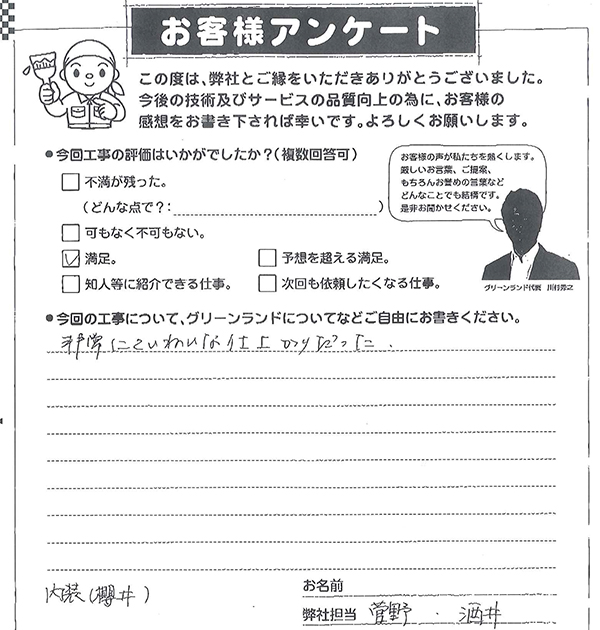 お客様アンケート
この度は、弊社とご縁をいただきありがとうございました。
今後の技術及びサービスの品質向上の為に、お客様の
感想をお書き下されば幸いです。よろしくお願いします。
●今回工事の評価はいかがでしたか?(複数回答可)
お客様の声が私たちを熱くします。
厳しいお言葉、ご提案、
もちろんお誉めの言葉など
どんなことでも結構です。
是非お聞かせください。
□ 不満が残った。
(どんな点で?: )
□ 可もなく不可もない。
☑ 満足。 □ 予想を超える満足。
□ 知人等に紹介できる仕事。 □ 次回も依頼したくなる仕事。
グリーンランド代表
●今回の工事について、グリーンランドについてなどご自由にお書きください。
非常にていねいな仕上がりだった.
内装(櫻井)
お名前
弊社担当 菅野 . 酒井